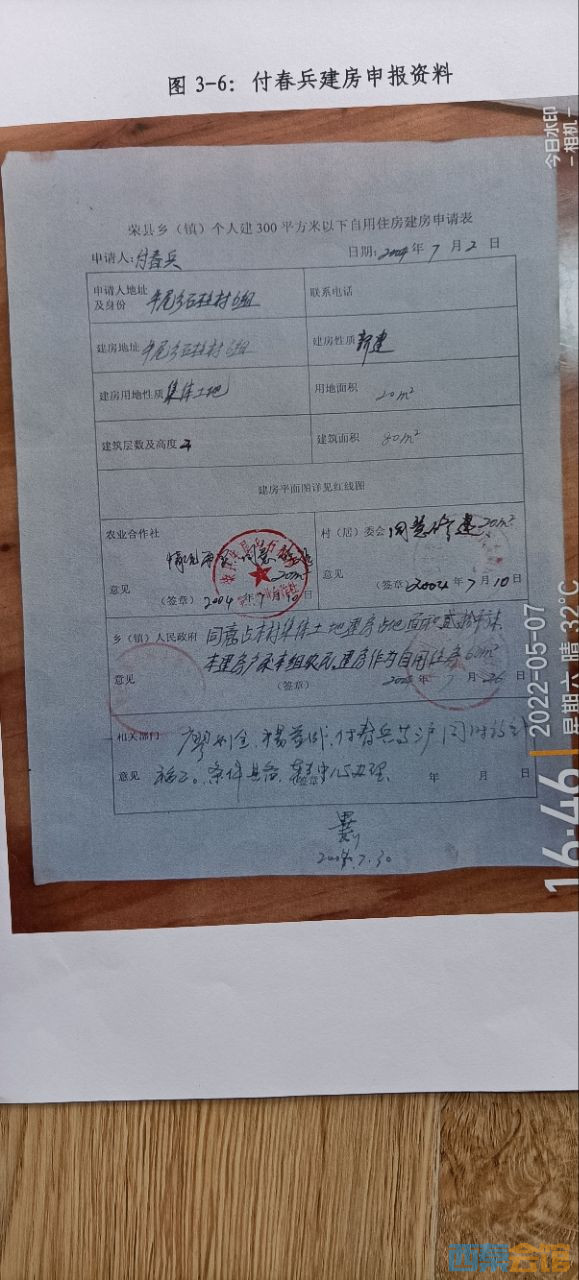 图 3-6: 付春兵建房申报资料
荣县乡（镇）个人建300平方米以下自用住房建房申请表
申请人:付春兵 日期:2004年7月2日
申请人地址及身份 牟尾乡石柱村6组 联系电话
建房地址 牟尾乡石柱村6组 建房性质 新建
建房用地性质 集体土地 用地面积 20m²
建筑层数及高度 建筑面积 80m²
建房平面图详见红线图
农业合作社 村（居）委会 同意修建20m²
情况
20m²
意见 意见
（签章）2004年7月10日 （签章）2004年7月10日
乡（镇）人民政府 同意占本村集体土地建房占地面积贰拾平米
本组农民,建房作为自用住房
意见 （签章） 年7月26日
相关部门 付春兵
意见 条件具备 办理 年 月 日
2004.7.30
今日水印
-相机-
16:46
2022-05-07
星期六 晴 32℃
西秦会馆